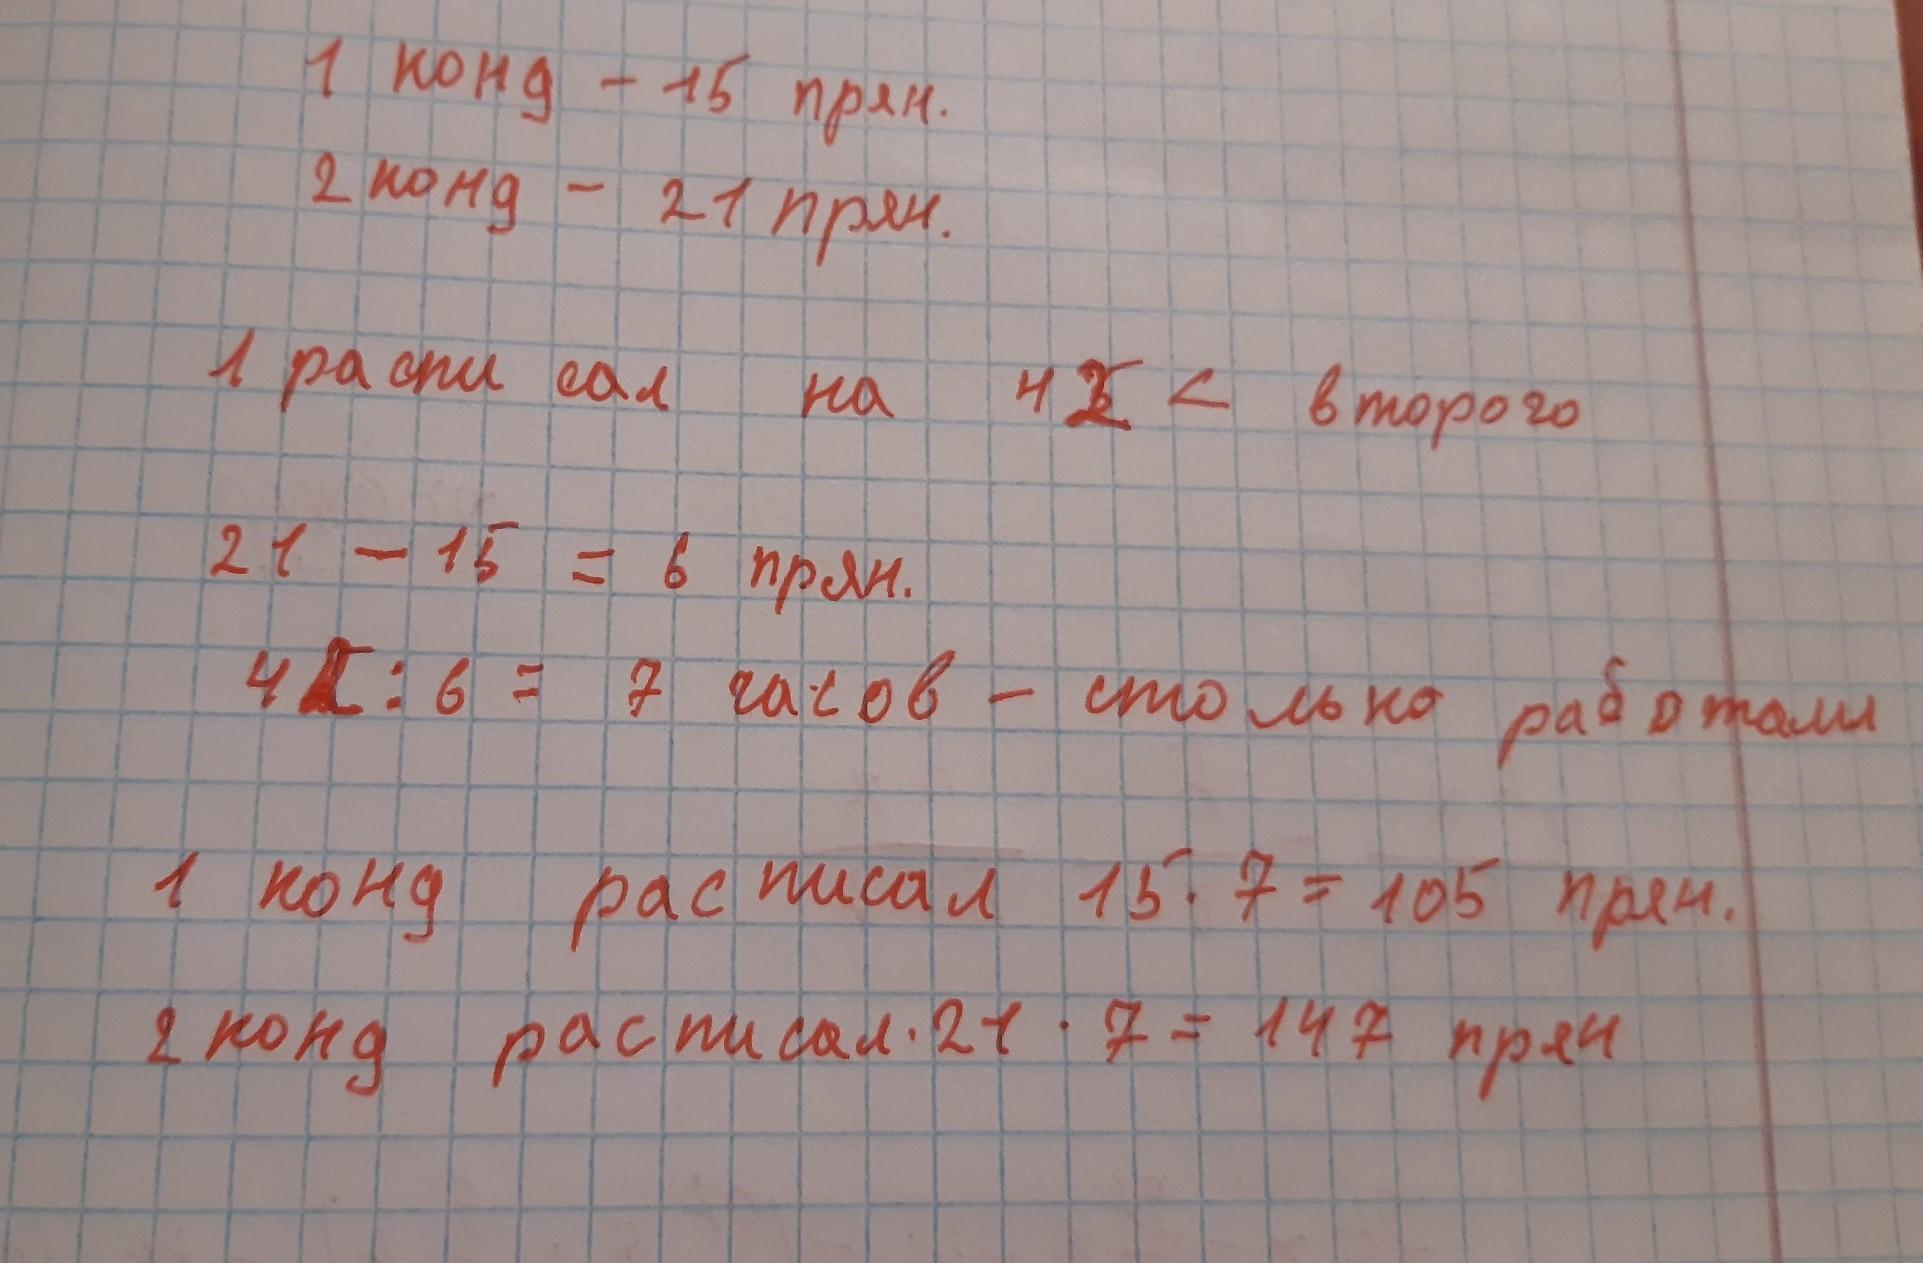 1 конд - 15 прян.
2 конд - 21 прян.
1 расписал на 42 < второго
21 - 15 = 6 прян.
42 : 6 = 7 часов - столько работали
1 конд расписал 15 · 7 = 105 прян.
2 конд расписал · 21 · 7 = 147 прян